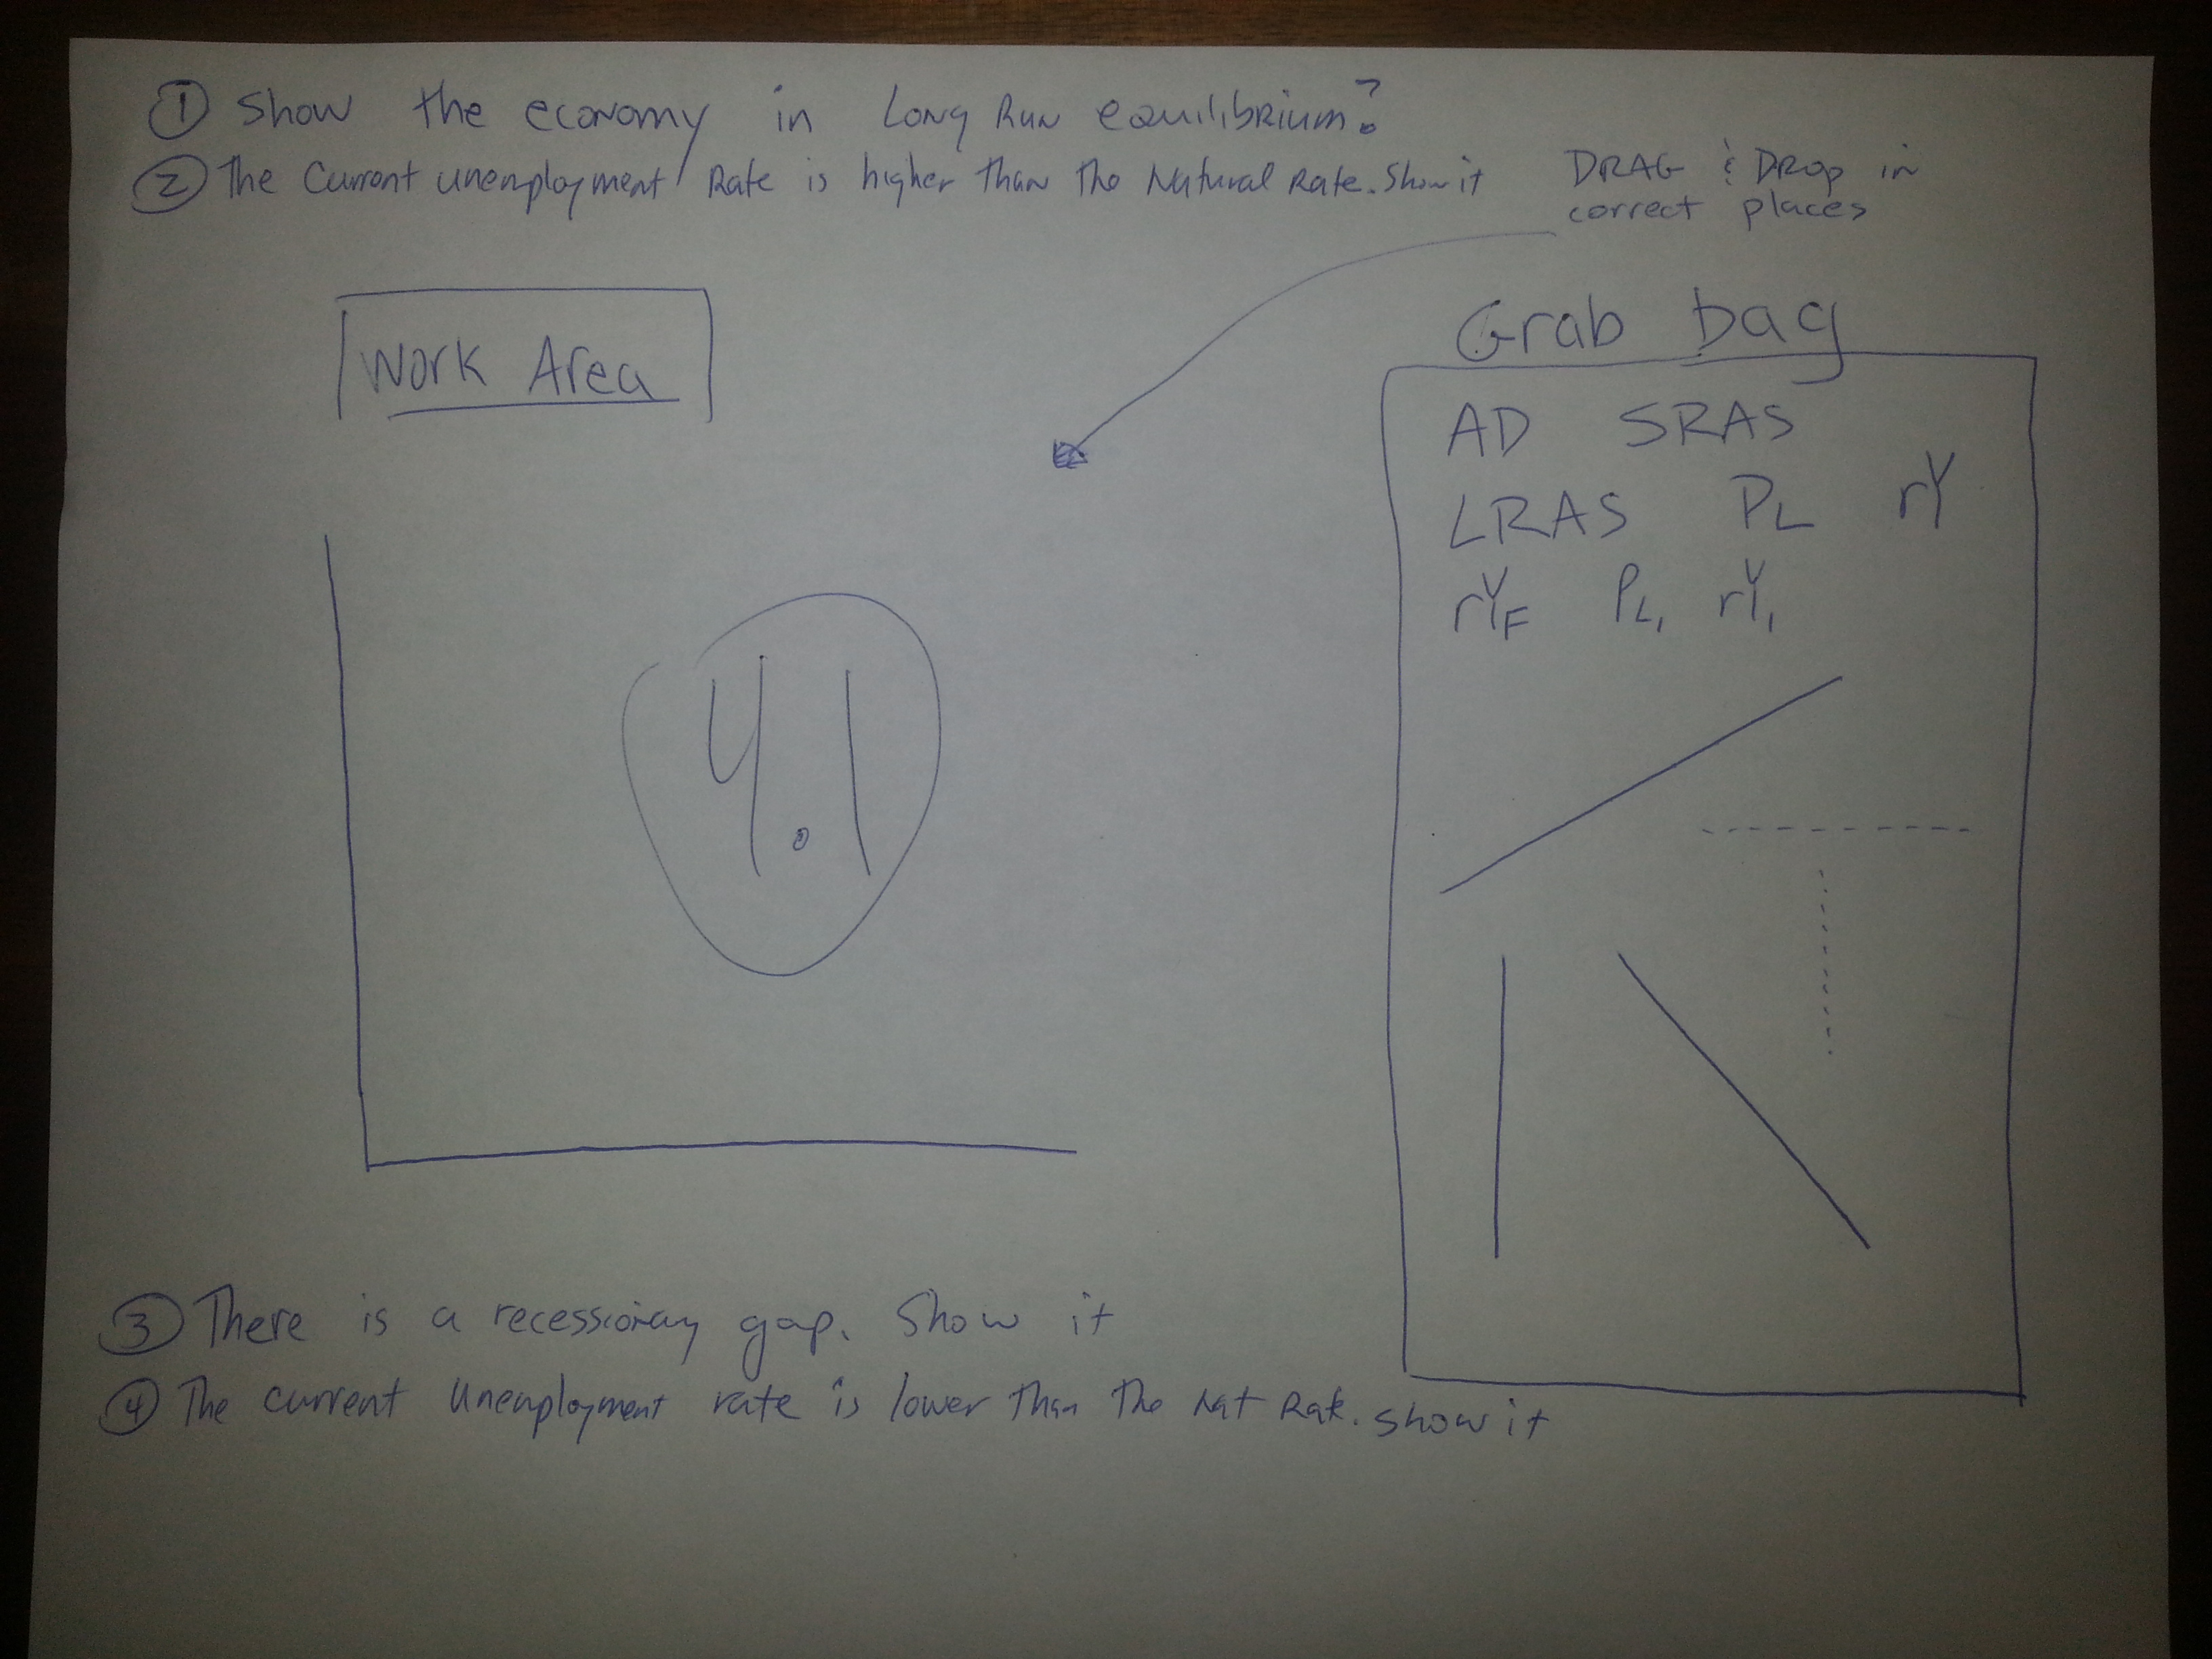 ① Show the economy in Long Run equilibrium?
② The Current unemployment Rate is higher than the Natural Rate. Show it
DRAG & DROP in
correct places
Work Area
Grab bag
AD SRAS
LRAS PL rY
rYF PL1 rY1
4.1
③ There is a recessionary gap. Show it
④ The current unemployment rate is lower than the Nat Rate. show it